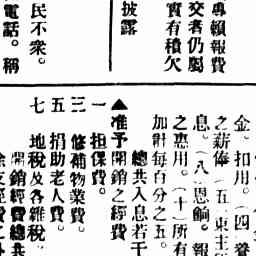 專賴報費
交者仍屬
實有積欠
披露
民不衆。
電話。稱
金。扣用。（四）養
之薪俸（五）東主
息。（八）恩餉。報
之惠用。（十）所有
加計每百分之五。
總共入息若干
▲准予開銷之經費
一 担保費。
三 修補物業費。
五 捐助老人費。
七 地稅及各雜稅
開銷經費總共